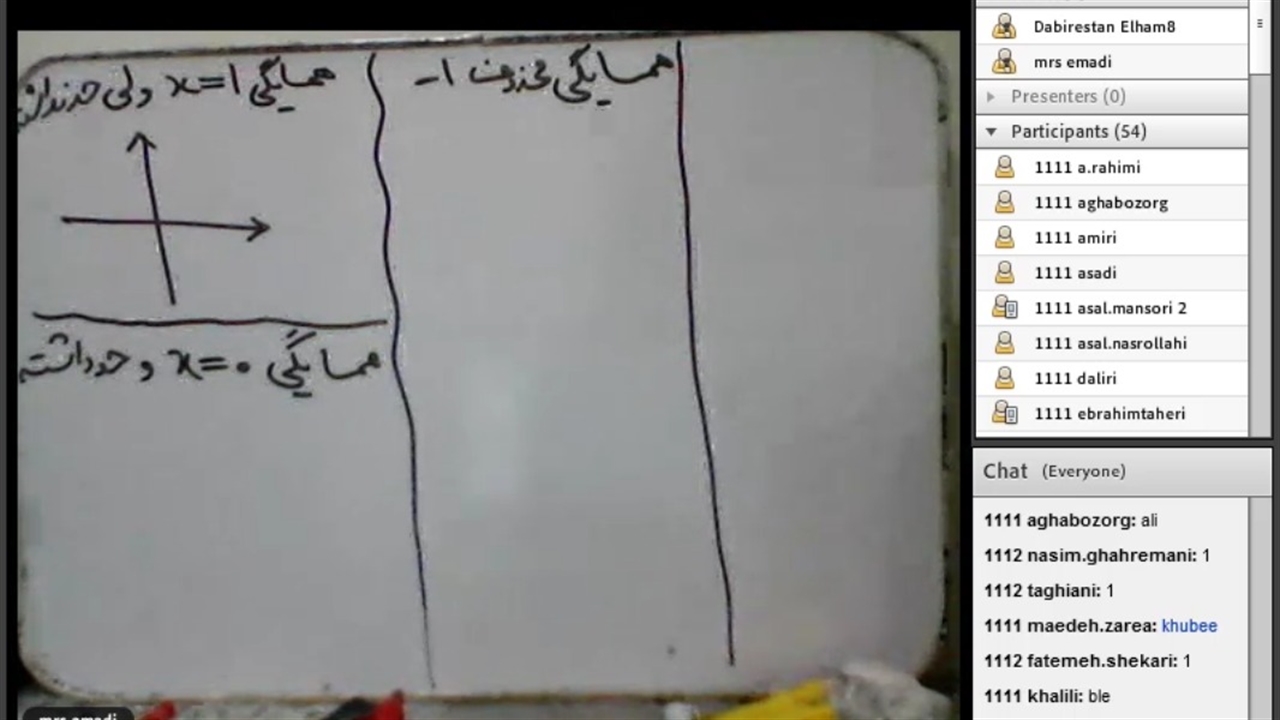 همسایگی محذوف ۱-
همسایگی x=۱ ولی حد نداشته
همسایگی x=۰ و حد داشته
mrs emadi
Dabirestan Elham8
mrs emadi
Presenters (0)
Participants (54)
1111 a.rahimi
1111 aghabozorg
1111 amiri
1111 asadi
1111 asal.mansori 2
1111 asal.nasrollahi
1111 daliri
1111 ebrahimtaheri
Chat (Everyone)
1111 aghabozorg: ali
1112 nasim.ghahremani: 1
1112 taghiani: 1
1111 maedeh.zarea: khubee
1112 fatemeh.shekari: 1
1111 khalili: ble